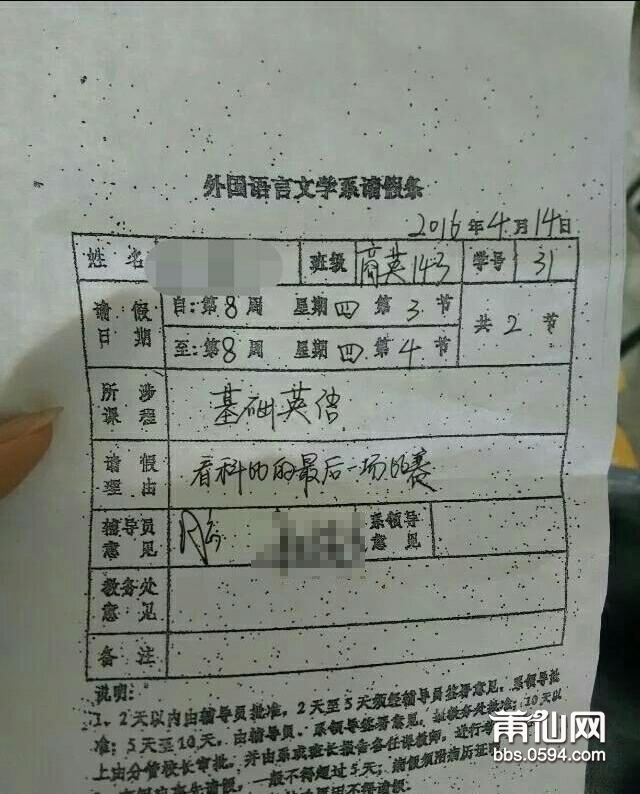 外国语言文学系请假条
2016年4月14日
姓名 班级 商英143 学号 31
请假日期 自:第8周 星期四 第3节 共2节
至:第8周 星期四 第4节
所涉课程 基础英语
请假理由 看科比的最后一场比赛
辅导员意见 系领导意见
教务处意见
备注
说明:
1、2天以内由辅导员批准,2天至5天须经辅导员签署意见,系领导批
准;5天至10天,由辅导员、系领导签署意见,报教务处批准;10天以
上由分管校长审批,并由系或班长报告各任课教师,进行
请假,一般不得超过5天;请假须附病历证
不得请假.
莆仙网
bbs.0594.com